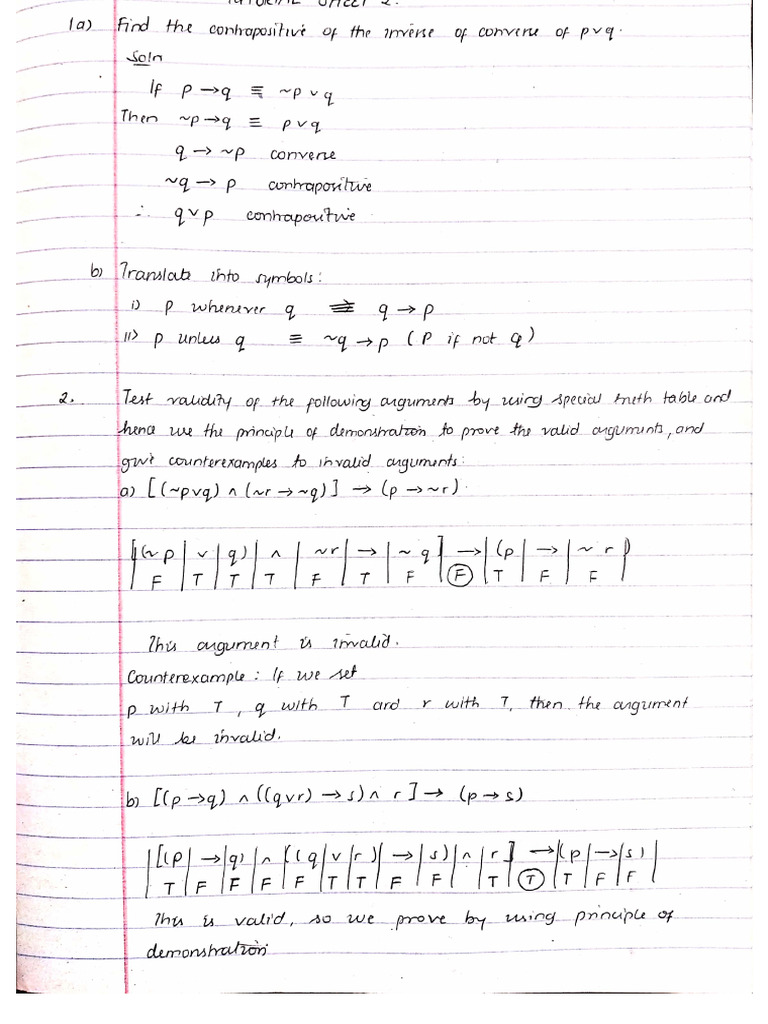 TUTORIAL SHEET 2.
1a) Find the contrapositive of the inverse of converse of p∨q.
Soln
If p → q ≡ ~p ∨ q
Then ~p → q ≡ p ∨ q
q → ~p converse
~q → p contrapositive
∴ q ∨ p contrapositive
b) Translate into symbols:
i) p whenever q ≡ q → p
ii) p unless q ≡ ~q → p (P if not q)
2. Test validity of the following arguments by using special truth table and
hence use the principle of demonstration to prove the valid arguments, and
give counterexamples to invalid arguments:
a) [(~p∨q) ∧ (~r → ~q)] → (p → ~r)
[(~p | ∨ | q) | ∧ | ~r | → | ~q] → | (p | → | ~r)
F | T | T | T | F | T | F | (F) | T | F | F
This argument is invalid.
Counterexample: If we set
p with T, q with T and r with T, then the argument
will be invalid.
b) [(p → q) ∧ ((q∨r) → s) ∧ r] → (p → s)
[(p | → | q) | ∧ | ((q | ∨ | r) | → | s) | ∧ | r] → | (p | → | s)
T | F | F | F | F | T | T | F | F | | T | (T) | T | F | F
This is valid, so we prove by using principle of
demonstration